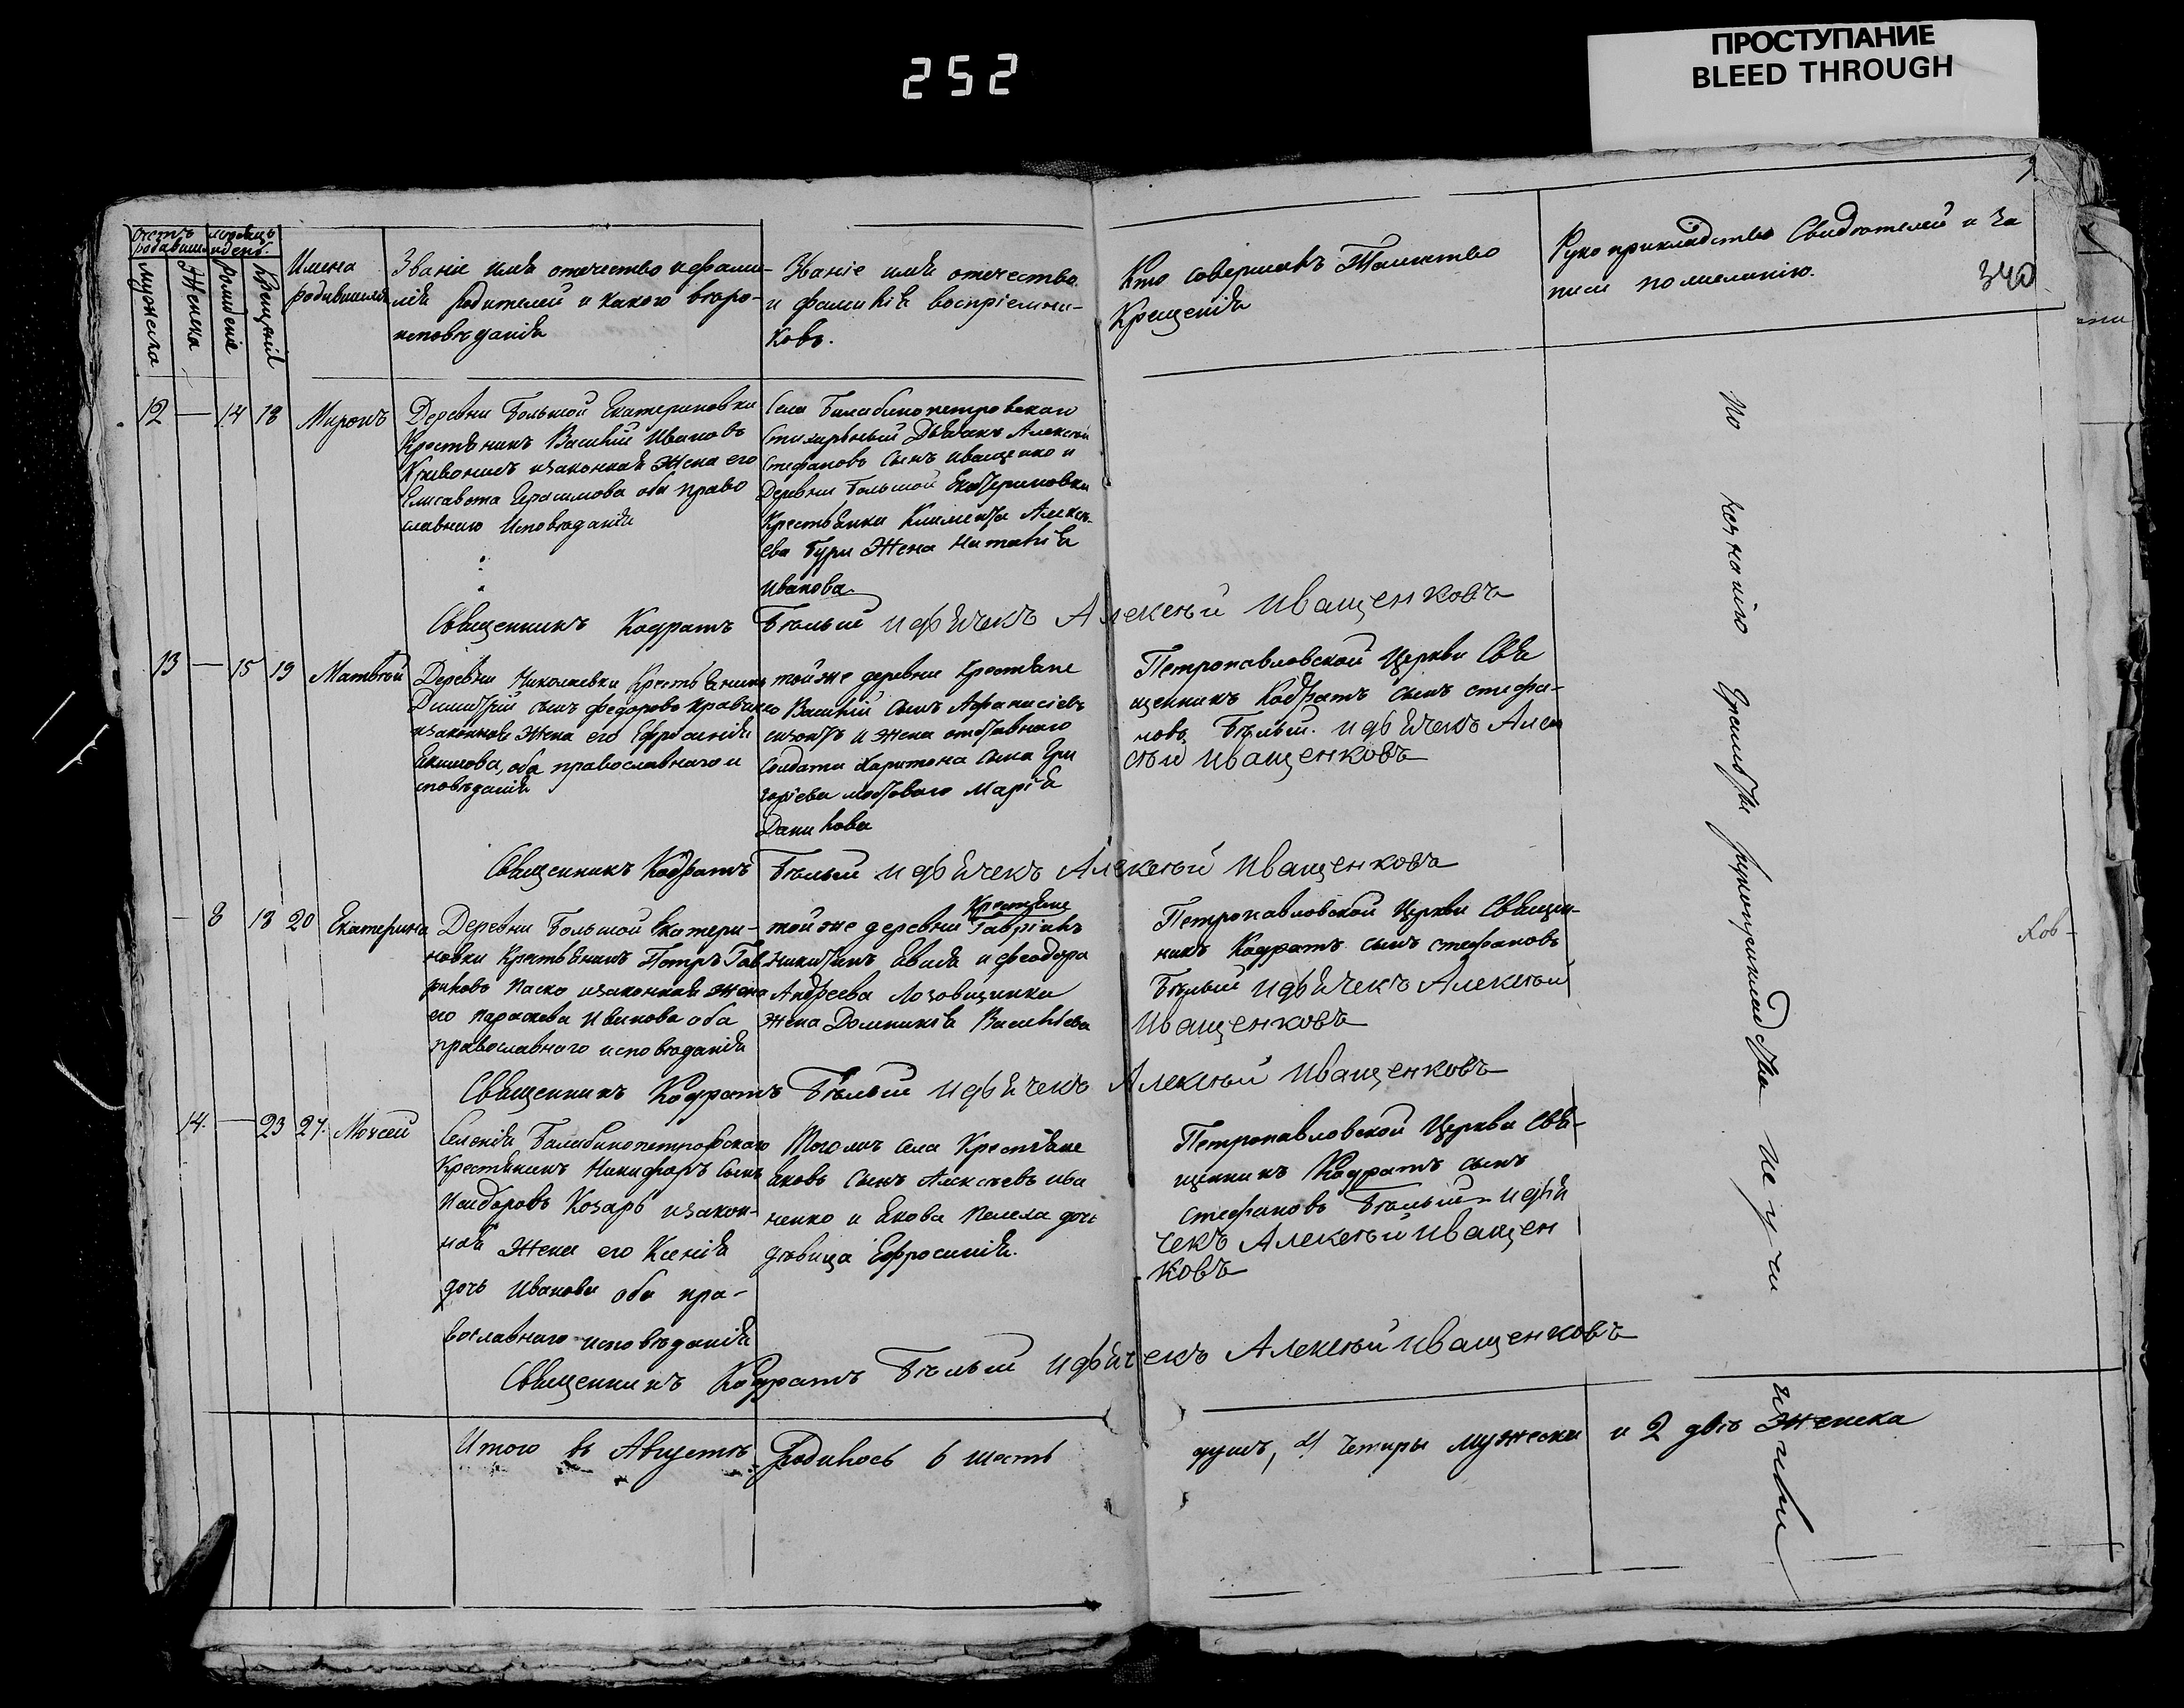 252
ПРОСТУПАНИЕ
BLEED THROUGH
340
Счетъ родившихся
мѣсяцъ и день
Мужеска
Женска
Рожденіе
Крещенія
Имена
родившихся
Званіе имя отечество и фами-
лія родителей и какого вѣро-
исповѣданія
Званіе имя отечество
и фамилія воспріемни-
ковъ.
Кто совершалъ Таинство
Крещенія
Рукоприкладство Свидѣтелей и за
писи по желанію.
12 — 14 18 Миронъ
Деревни Большой Екатериновки
Крестьянинъ Василій Ивановъ
изаконная Жена его
Елисавета Герасимова оба право
славнаго Исповѣданія
Села Балабинопетровскаго
Стихарный Дьячекъ Алексѣй
Стефановъ Сынъ Иващенко и
Деревни Большой Екатериновки
Крестьянки Климента Алексѣ-
ева Бури Жена Наталія
Иванова
Священникъ Кодратъ Бѣлый и дьячекъ Алексѣй Иващенковъ
13 — 15 19 Матвѣй
Деревни Николаевки Крестьянинъ
Димитрій сынъ Федорово Кравченко
изаконная Жена его Ефросинія
Екимова, оба православнаго и
сповѣданія
той же деревни Крестьяне
Василій Сынъ Афанасіевъ
и жена отставнаго
Солдата Харитона Сына Гри
горіева Мостоваго Марія
Данилова
Петропавловской Церкви Свя
щенникъ Кодратъ сынъ стефа-
новъ Бѣлый. и дьячекъ Алек
сѣй Иващенковъ
Священникъ Кодратъ Бѣлый и дьячекъ Алексѣй Иващенковъ
— 8 18 20 Екатерина
Деревни Большой Екатери-
новки Крестьянинъ Петръ Гав
риловъ Паско изаконная жена
его Параскева Иванова оба
православнаго исповѣданія
Крестьяне
той же деревни Гавріилъ
Никитинъ и Феодора
Андреева Лозовицкаго
жена Домникія Васильева
Петропавловской Церкви Священ-
никъ Кодратъ сынъ стефановъ
Бѣлый и дьячекъ Алексѣй
Иващенковъ
Священникъ Кодратъ Бѣлый и дьячекъ Алексѣй Иващенковъ
14. — 23 27. Моѵсей
Селенія Балабинопетровскаго
Крестьянинъ Никифоръ Сынъ
Исидоровъ Козарь изакон-
ная Жена его Ксенія
дочь Иванова оба пра-
вославнаго исповѣданія
Тогожъ Села Крестьяне
Яковъ Сынъ Алексѣевъ Ива
ненко и Якова Пелела дочь
дѣвица Ефросинія.
Петропавловской Церкви Свя-
щенникъ Кодратъ сынъ
Стефановъ Бѣлый и дья
чекъ Алексѣй Иващен
ковъ
Священникъ Кодратъ Бѣлый и дьячекъ Алексѣй Иващенковъ
По незнанію Грамоты рукоприкладства не учи
нили
Итого въ Августѣ Родилось 6 шесть душъ, 4 четыри мужеска и 2 двѣ Женска